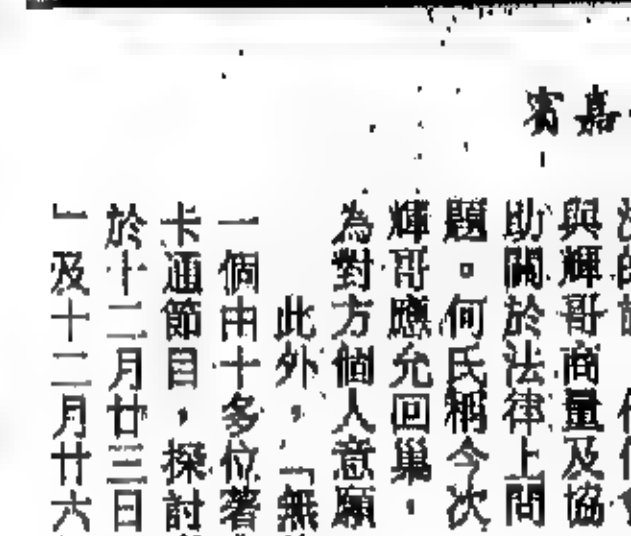 嘉賓
與輝哥商量及協
助關於法律上問
題。何氏稱今次
輝哥應允回巢，
為對方個人意願
此外，「無
一個由十多位著
卡通節目，探討
於十二月廿三日
」及十二月廿六